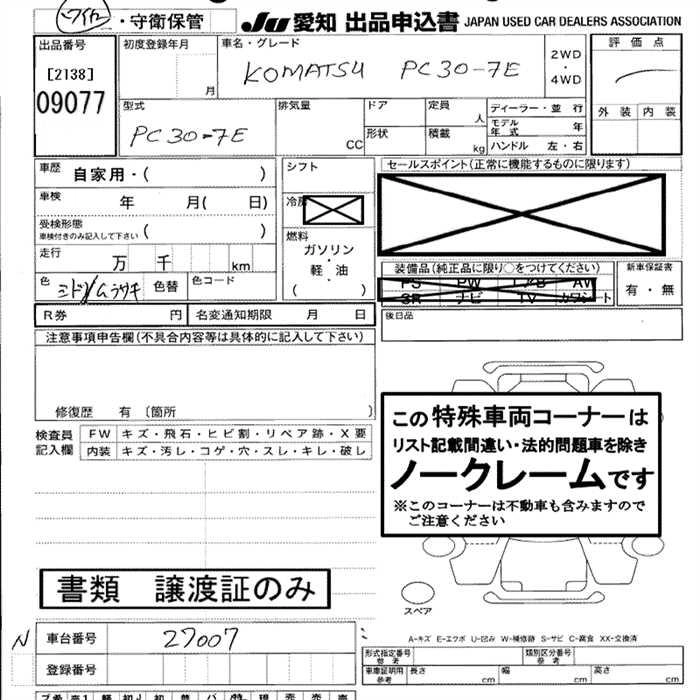 ・守衛保管 Ju 愛知 出品申込書 JAPAN USED CAR DEALERS ASSOCIATION
出品番号
[2138]
09077
初度登録年月
月
車名・グレード
KOMATSU PC30-7E
2WD
・
4WD
評価点
外装 内装
型式
PC30-7E
排気量
CC
ドア
形状
定員
人
積載
kg
ディーラー・並行
モデル年式 年
ハンドル 左・右
車歴 自家用・( )
車検 年 月( 日)
受検形態
車検付きのみ記入して下さい ( )
走行 万 千 km
色 ミドリ/ムラサキ 色替 色コード
シフト
冷房
燃料
ガソリン
・
軽・油
( )
セールスポイント(正常に機能するものに限ります)
装備品(純正品に限り○をつけてください)
PS PW エアB AW
SR ナビ TV カワシート
新車保証書
有・無
後日品
R券 円 名変通知期限 月 日
注意事項申告欄(不具合内容等は具体的に記入して下さい)
修復歴 有 〔箇所 〕
検査員
記入欄
FW キズ・飛石・ヒビ割・リペア跡・X要
内装 キズ・汚レ・コゲ・穴・スレ・キレ・破レ
この特殊車両コーナーは
リスト記載間違い・法的問題車を除き
ノークレームです
※このコーナーは不動車も含みますので
ご注意ください
書類 譲渡証のみ
スペア
A-キズ E-エクボ U-凹み W-補修跡 S-サビ C-腐食 XX-交換済
N 車台番号 27007
登録番号
形式指定番号
参考
類別区分番号
参考
車庫証明用
参考
長さ cm 幅 cm 高さ cm